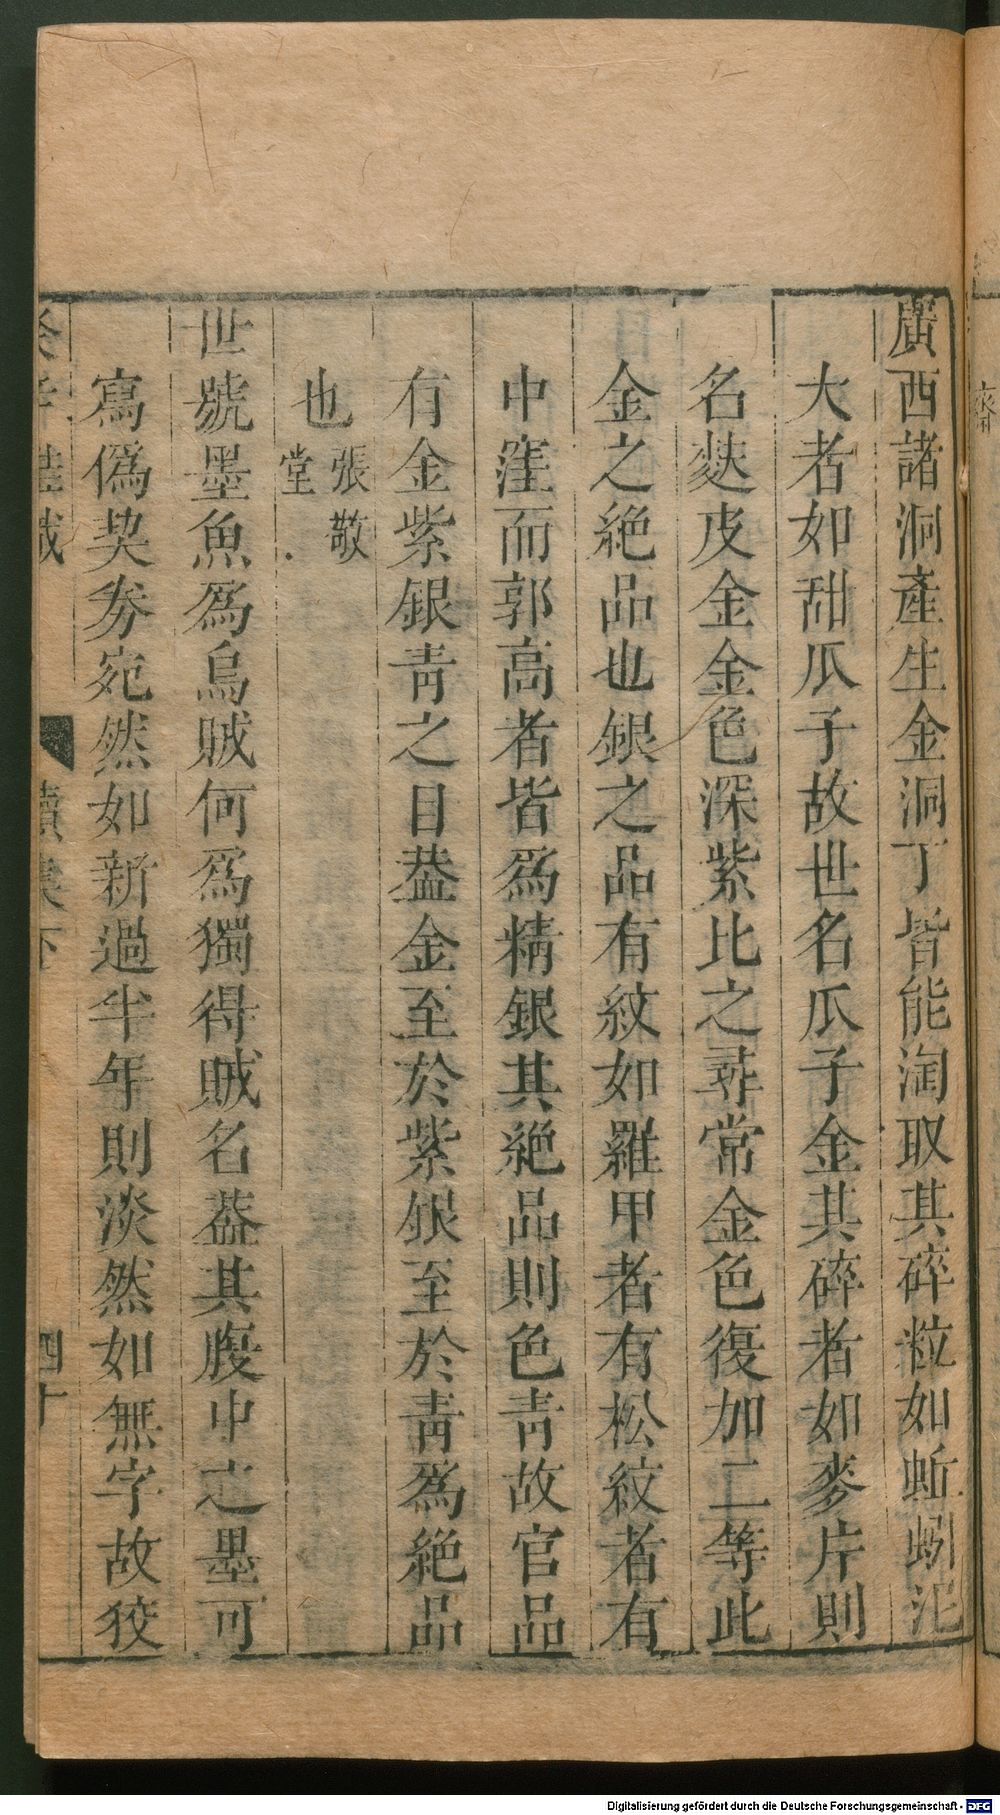 廣西諸洞產生金洞丁皆能淘取其碎粒如蚯蚓泥
大者如甜瓜子故世名瓜子金其碎者如麥片則
名麩皮金金色深紫比之尋常金色復加二等此
金之絕品也銀之品有紋如羅甲者有松紋者有
中窪而郭高者皆爲精銀其絕品則色青故官品
有金紫銀青之目葢金至於紫銀至於青爲絕品
也張敬堂
世號墨魚爲烏賊何爲獨得賊名葢其腹中之墨可
寫僞契券宛然如新過半年則淡然如無字故狡
癸辛雜識 續集下 四十
Digitalisierung gefördert durch die Deutsche Forschungsgemeinschaft - DFG